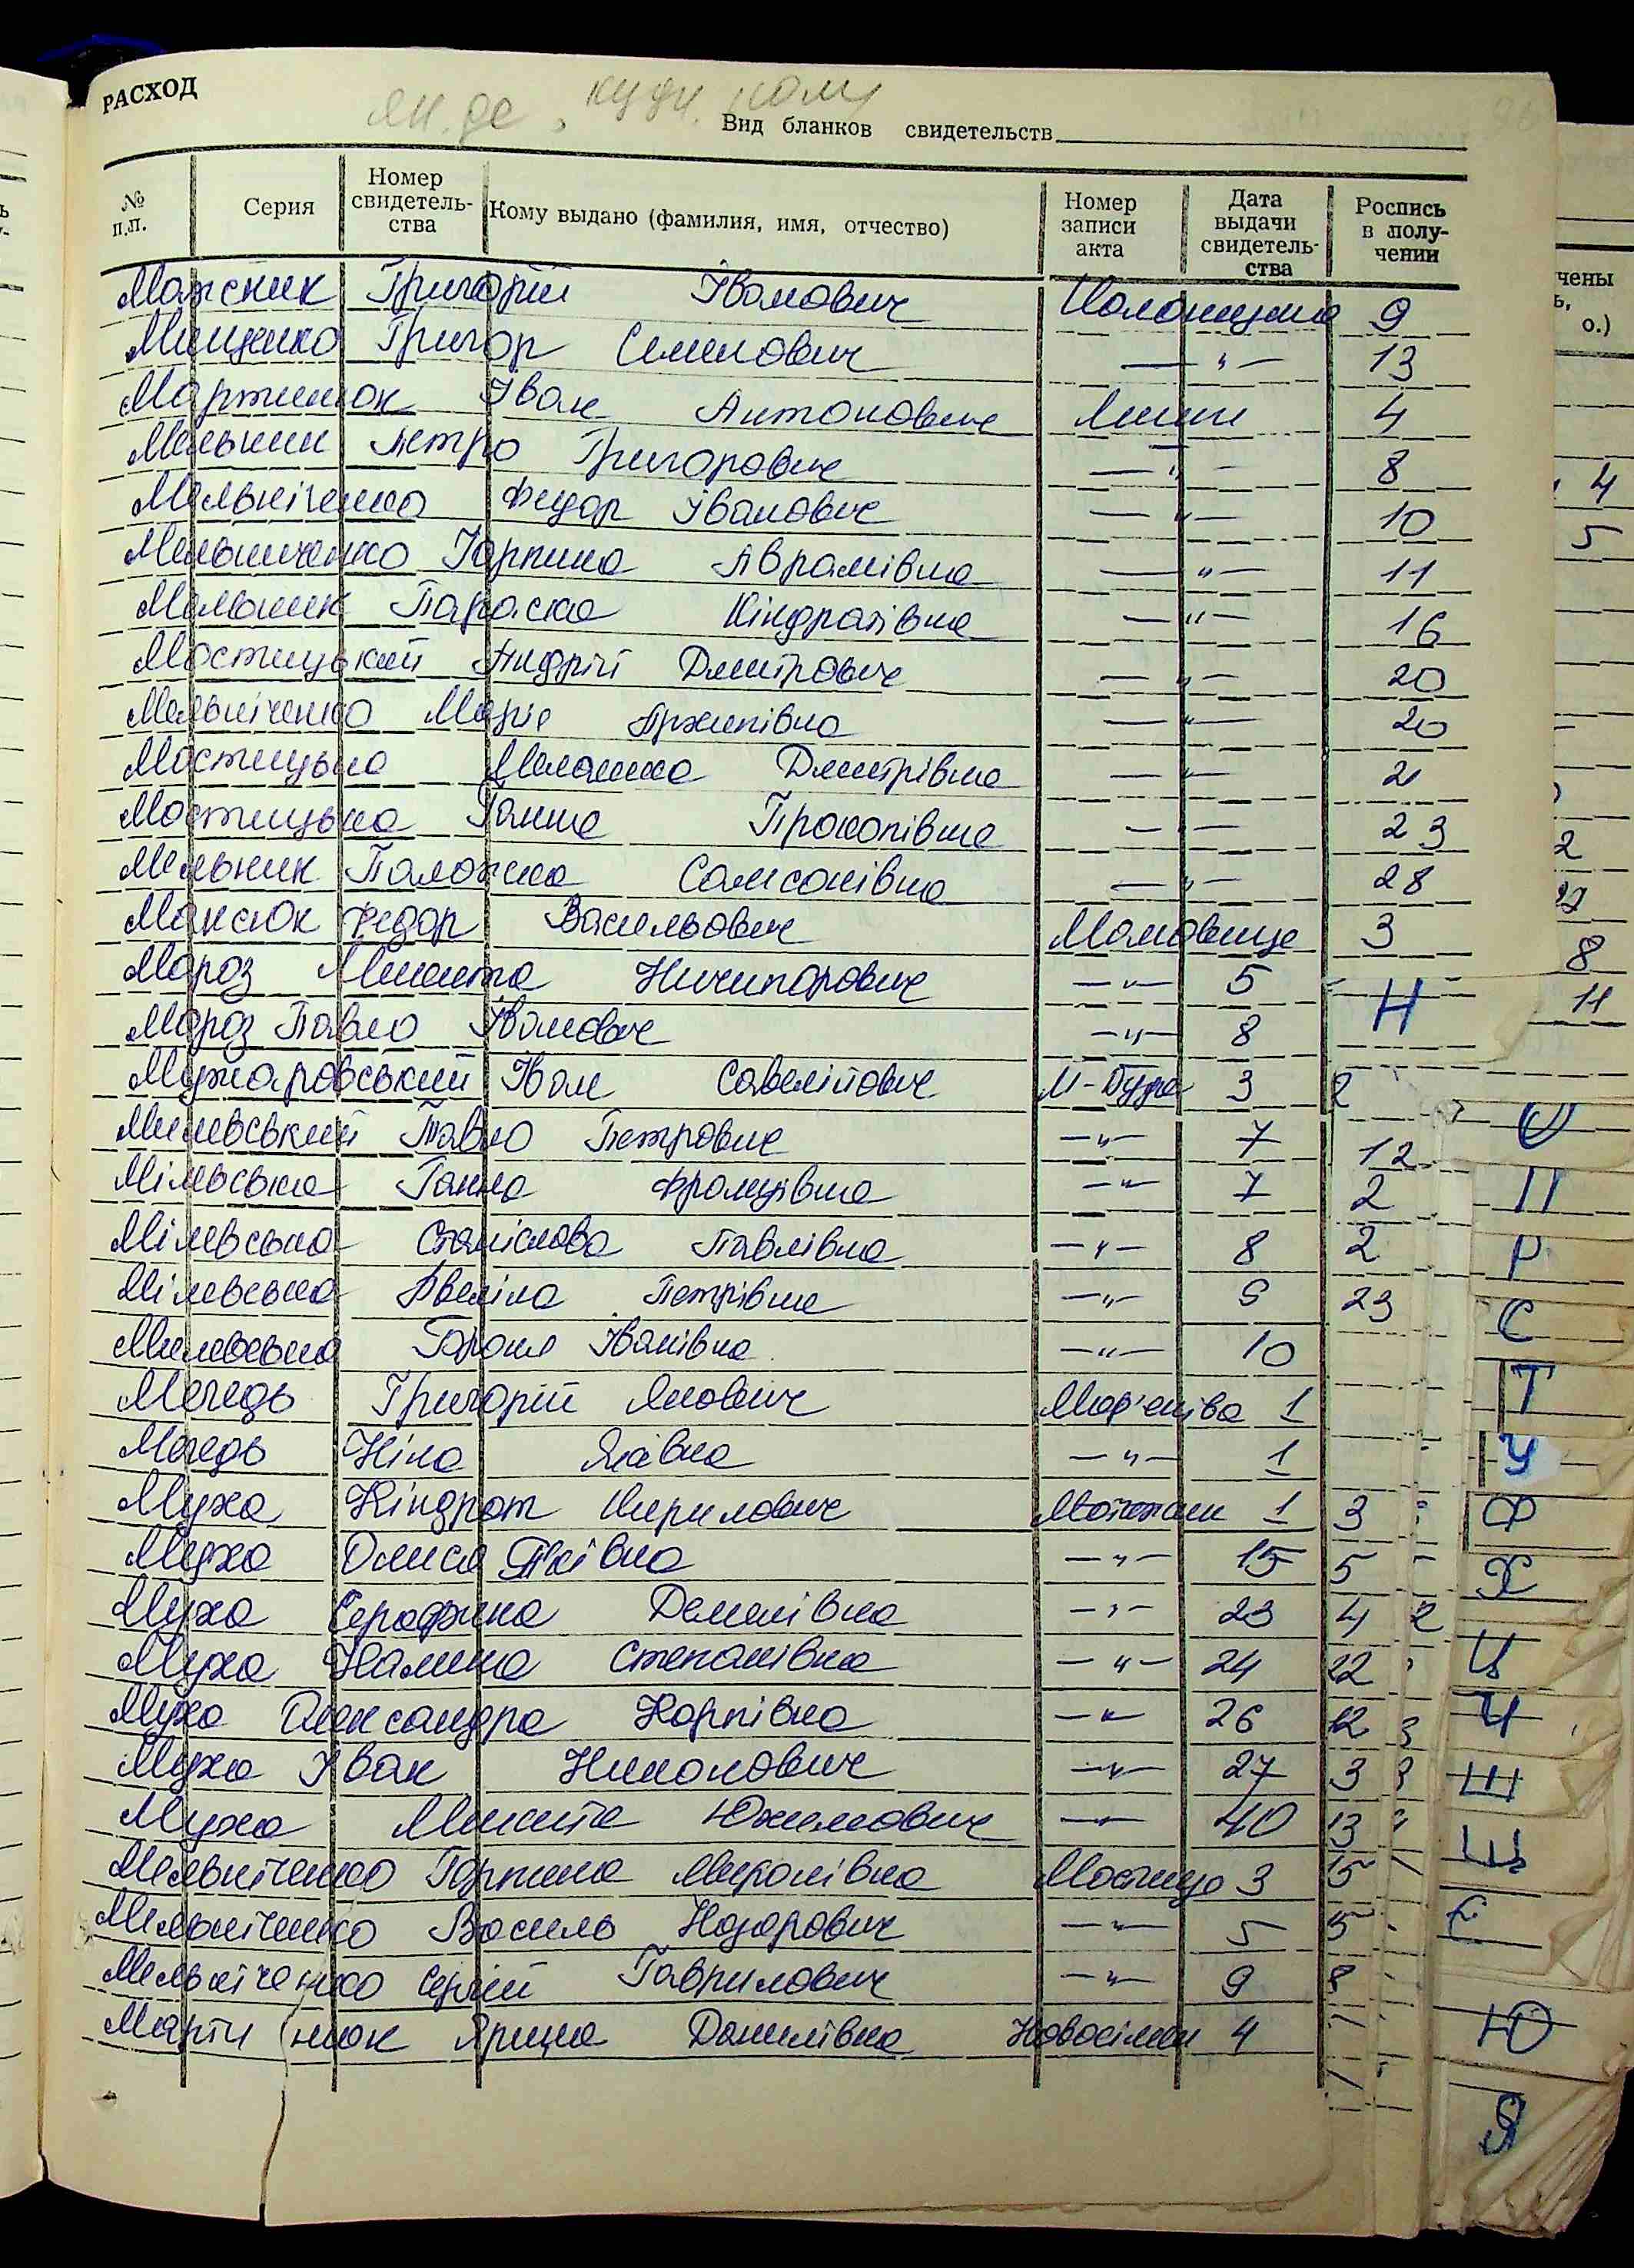 РАСХОД
Вид бланков свидетельств
№ п.п. Серия Номер свидетельства Кому выдано (фамилия, имя, отчество) Номер записи акта Дата выдачи свидетельства Роспись в получении
Григорій Іванович 9
Мищенко Григор Семенович — " — 13
Мартинюк Іван Антонович 4
Мельник Петро Григорович — " — 8
Мельніченко Федор Іванович — " — 10
Мельниченко Горпина Аврамівна — " — 11
Мельник Параска Кіндратівна — " — 16
Мостицький Андрій Дмитрович — " — 20
Мельніченко Марія Архипівна — " — 20
Мостицька Меланка Дмитрівна — " — 21
Мостицька Ганна Прокопівна — " — 23
Мельник Палажка Самсонівна — " — 28
Максюк Федор Васильович 3
Мороз Микита Ничипорович — " — 5
Мороз Павло Іванович — " — 8
Мужаровський Іван Савелійович М-Буда 3
Милевський Павло Петрович — " — 7
Мілевська Ганна Францівна — " — 7
Мілевська Станіслава Павлівна — " — 8
Мілевська Авеліна Петрівна — " — 9
Милевська Гороня Іванівна — " — 10
Мегедь Григорій Якович Мар'янівка 1
Мегедь Ніна Яківна — " — 1
Муха Кіндрат Кирилович 1
Муха Олися Яківна — " — 15
Муха Серафина Демянівна — " — 23
Муха Степанівна — " — 24
Муха Олександра Карпівна — " — 26
Муха Іван Николович — " — 27
Муха Микита Юхимович — " — 40
Мельніченко Горпина Миронівна Мостище 3
Мельніченко Василь Назарович — " — 5
Мельніченко Сергій Гаврилович — " — 9
Мартинюк Ярина Данилівна Новосілки 4
Н
О
П
Р
С
Т
У
Ф
Х
Ц
Ч
Ш
Щ
Є
Ю
Я